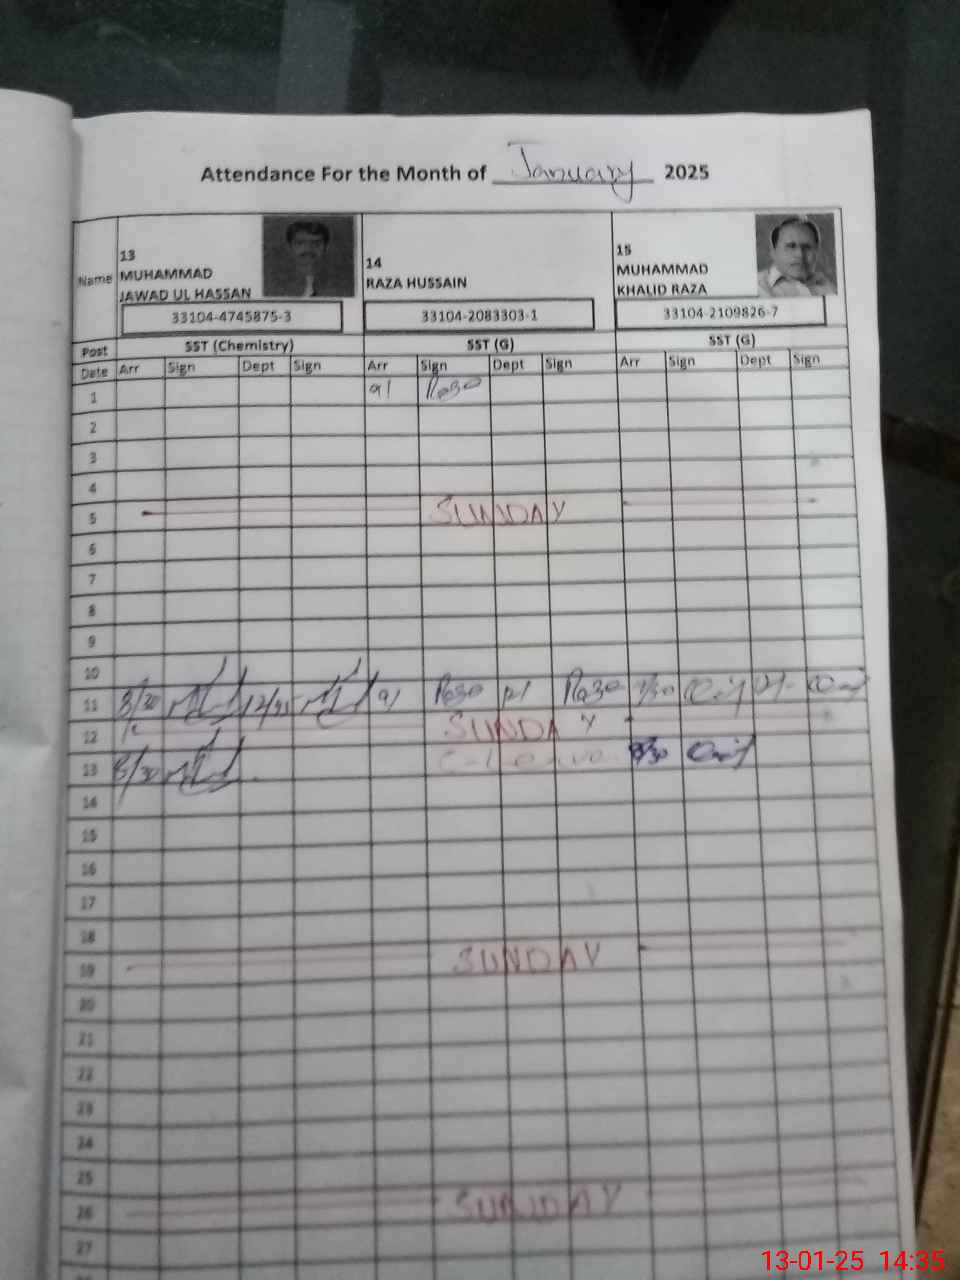 Attendance For the Month of January 2025
Name
13
MUHAMMAD
JAWAD UL HASSAN
33104-4745875-3
14
RAZA HUSSAIN
33104-2083303-1
15
MUHAMMAD
KHALID RAZA
33104-2109826-7
Post SST (Chemistry) SST (G) SST (G)
Date Arr Sign Dept Sign Arr Sign Dept Sign Arr Sign Dept Sign
1 9/
2
3
4
5 SUNDAY
6
7
8
9
10
11 8/30 9/
12 SUNDAY
13 8/30 8/30
14
15
16
17
18
19 SUNDAY
20
21
22
23
24
25
26 SUNDAY
27
13-01-25 14:35